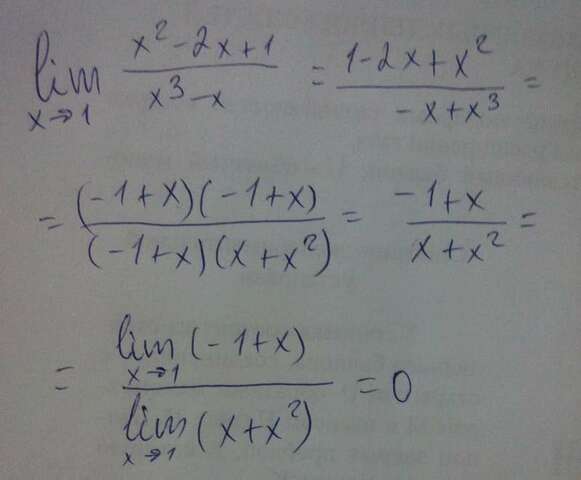 lim x→1 (x² - 2x + 1)/(x³ - x) = (1 - 2x + x²)/(-x + x³) =
= ((-1 + x)(-1 + x))/((-1 + x)(x + x²)) = (-1 + x)/(x + x²) =
= (lim x→1 (-1 + x))/(lim x→1 (x + x²)) = 0